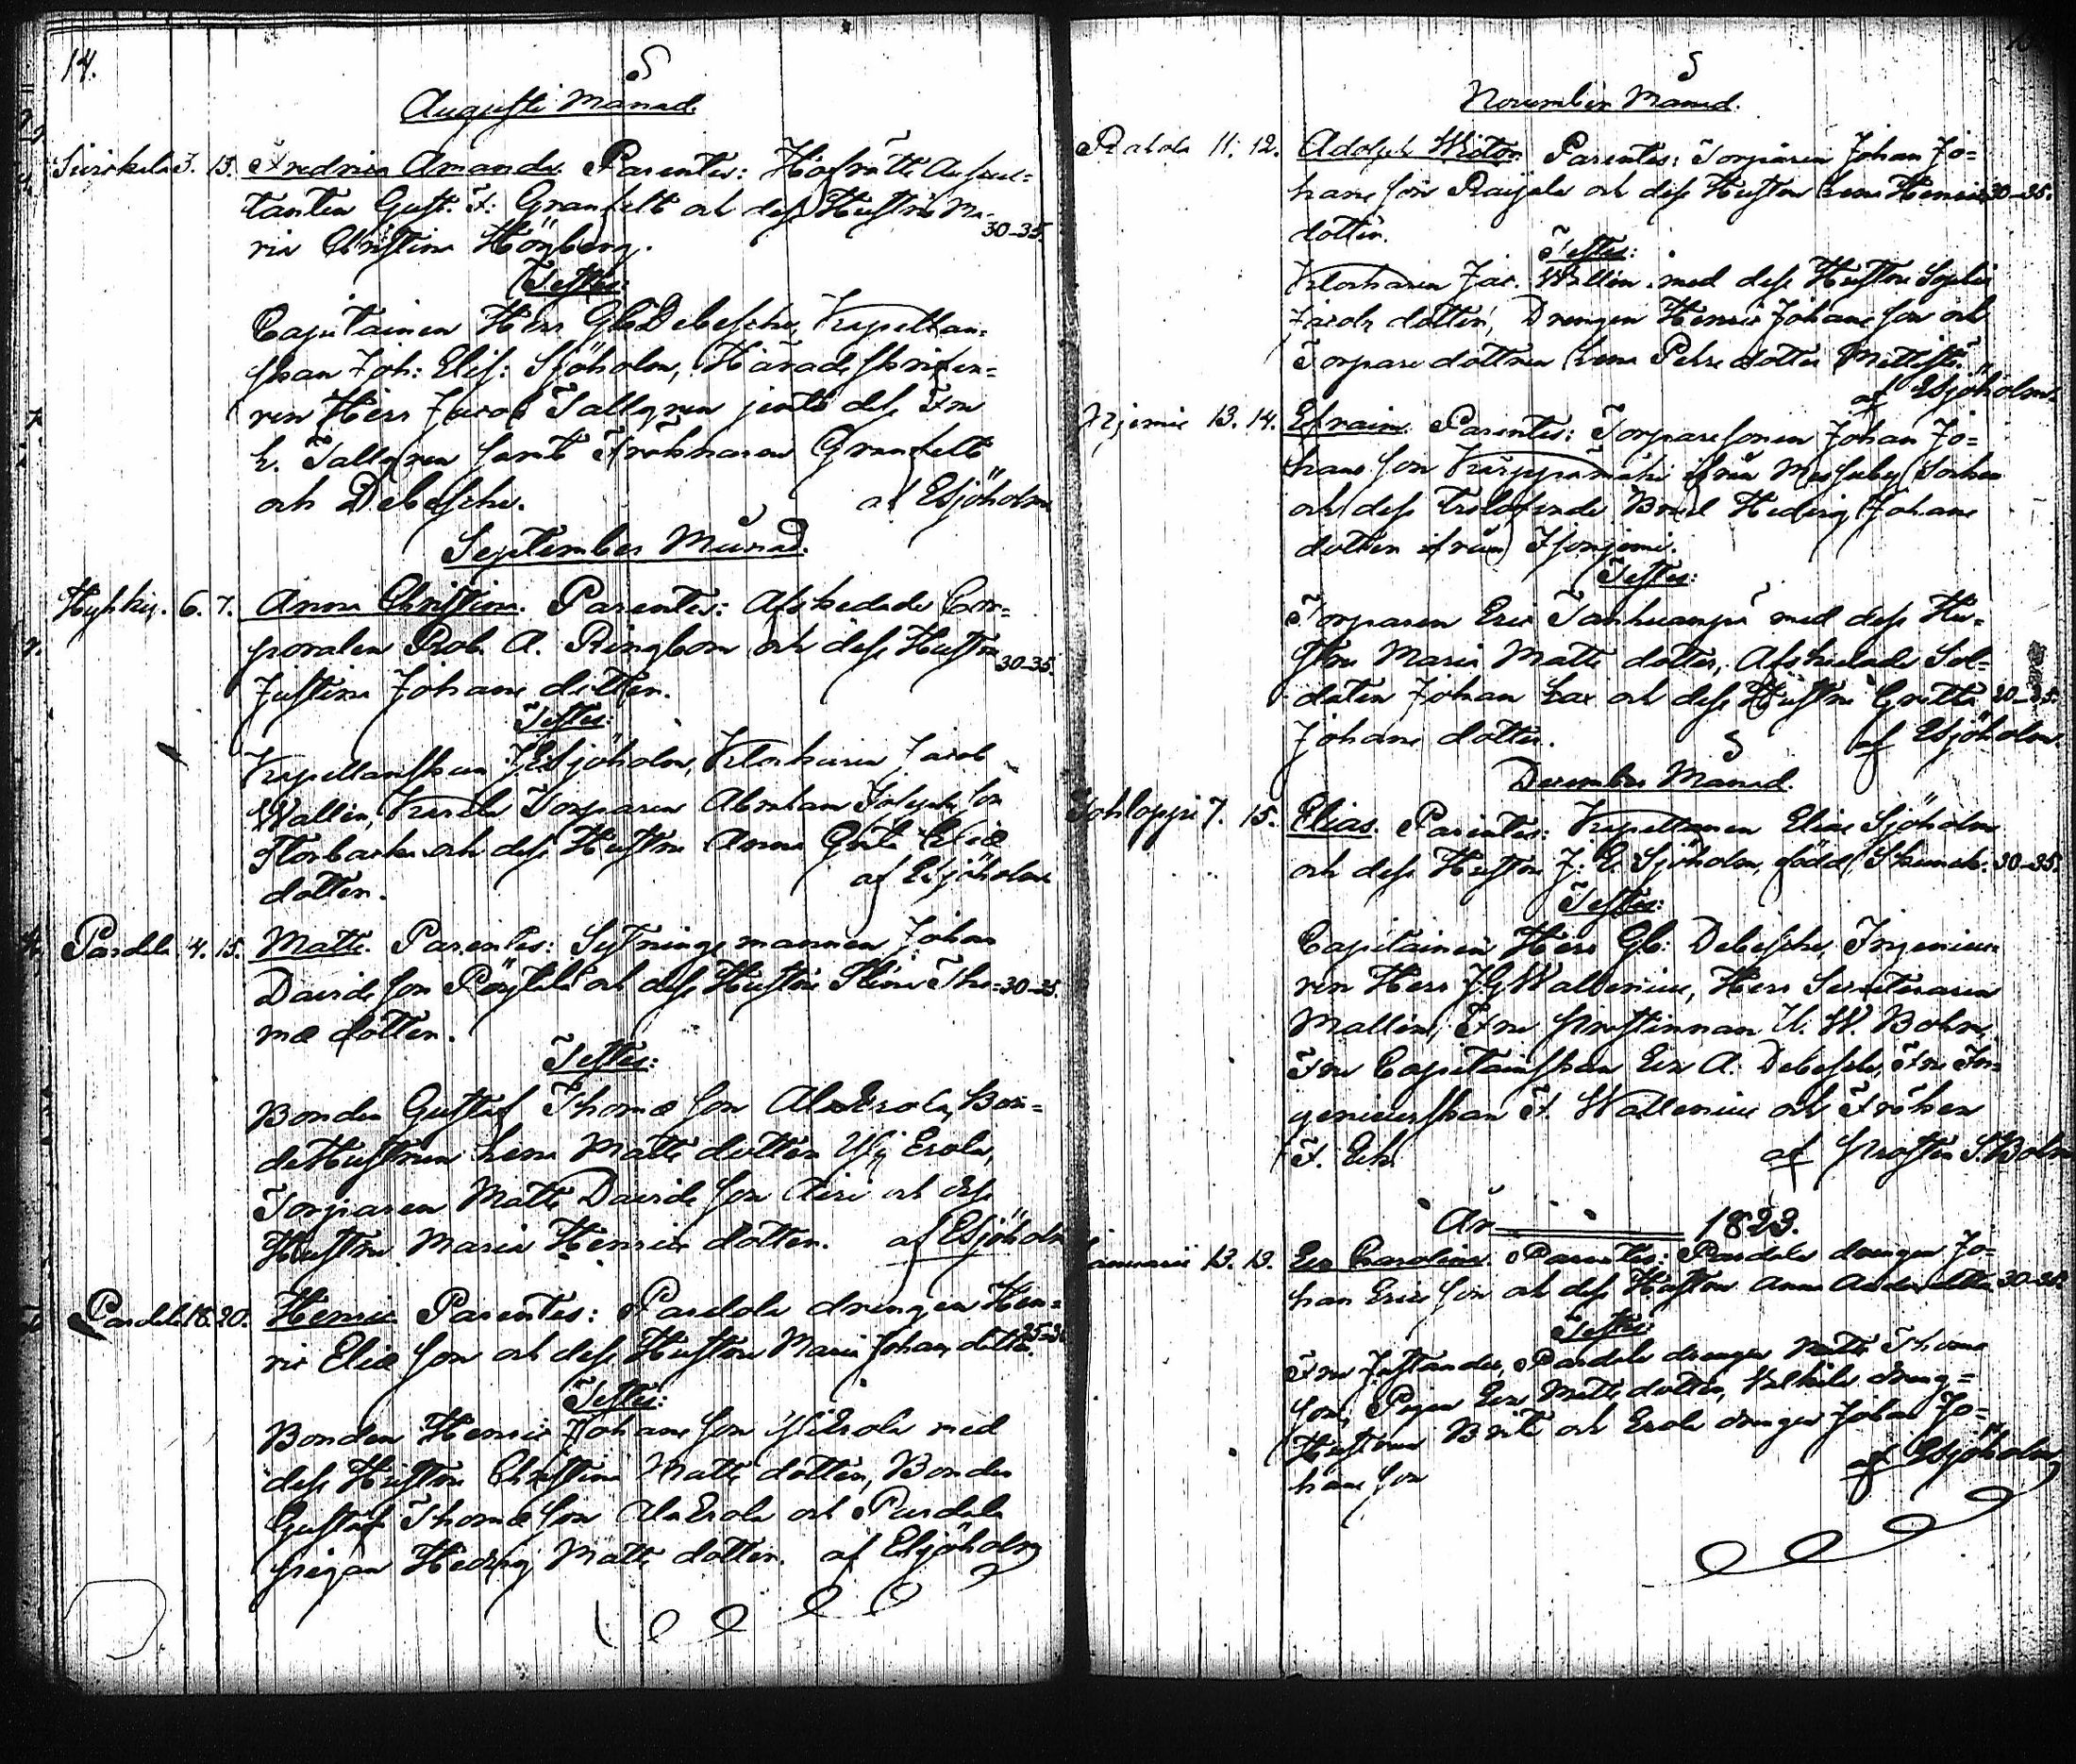 14.
Augusti Månad.
13. Fredrica Amanda. Parentes: Hofrätts Auscul=
tanten Gust. F: Granfelt och dess Hustru Ma-
30-35.
ria Christina Högberg.
Testes:
Capitainen Herr Gb Debesche, Kapellan=
skan Joh: Elis: Sjöholm, Häradsskrifva=
ren Herr Jacob Tallgren jemte dess Fru
Tallgren samt Fröknarna Granfelt
och Debesche. af ESjöholm
September Månad.
6. 7. Anna Christina. Parentes: Afskedade Cor=
poralen Rob. A. Ringbom och dess Hustru
30-35.
Justina Johans dotter.
Testes:
Kapellanskan JESjöholm, Klockaren Jacob
Wallin, Torparen Abraham Josephs son
Storbacka och dess Hustru Anna Elias
dotter. af ESjöholm
Pardala 4. 15. Matts. Parentes: Sytningsmannen Johan
Davids son och dess Hustru Stina Tho= 30-35.
mæ dotter.
Testes:
Bonden Gustaf Thomæ son AlaErola, Bon=
deHustrun Lena Matts dotter Erola,
Torparen Matts Davids son och dess
Hustru Maria Henrics dotter. af ESjöholm
Pardala 18. 20. Henric Parentes: Pardala drengen Hen=
ric Eliæ son och dess Hustru Maria Johans dotter.
Testes:
Bonden Henric Johans son Erola med
dess Hustru Christina Matts dotter, Bonden
Gustaf Thomæ son AlaErola och Pardala
pigan Hedvig Matts dotter. af ESjöholm
November Månad.
11. 12. Adolph Victor Parentes: Torparen Johan Jo=
hans son och dess Hustru Lena Henrics 30-35.
dotter.
Testes:
Klockaren Jac. Wallin med dess Hustru Sophia
Jacobs dotter, Drengen Henric Johans son och
Torpare dottren Lena Pehrs dotter
af ESjöholm.
13. 14. Efraim. Parentes: Torparesonen Johan Jo=
hans son ifrån Messuby Sochn
och dess trolofvade Brud Hedvig Johans
dotter ifrån
Testes:
Torparen Eric med dess Hu=
stru Maria Matts dotter, Afskedade Sol=
daten Johan Lax och dess Hustru Gretta 30-35.
Johans dotter. af ESjöholm.
December Månad.
7. 15. Elias. Parentes: Kapellanen Elias Sjöholm
och dess Hustru J: E. Sjöholm, född 30-35.
Testes:
Capitainen Herr Gb: Debesche, Ingenieu=
ren Herr JG Wallenius, Herr Secreteraren
Mallin, Fru Prostinnan U. W. Bohm,
Fru Capitainskan Eva A. Debesche, Fru In=
genieurskan F. Wallenius och Fröken
F. Ek. af Prosten S. Bohm
År 1823.
Januarii 13. 13. Eva Carolina. Parentes: Pardala drengen Jo=
han Erics son och dess Hustru Anna Anders dotter 30-35.
Testes
Fru Pardala drengen Matts Thomæ
son, Pigan Eva Matts dotter, dreng=
Hustrun Brita och Erola drengen Johan Jo=
hans son af ESjöholm